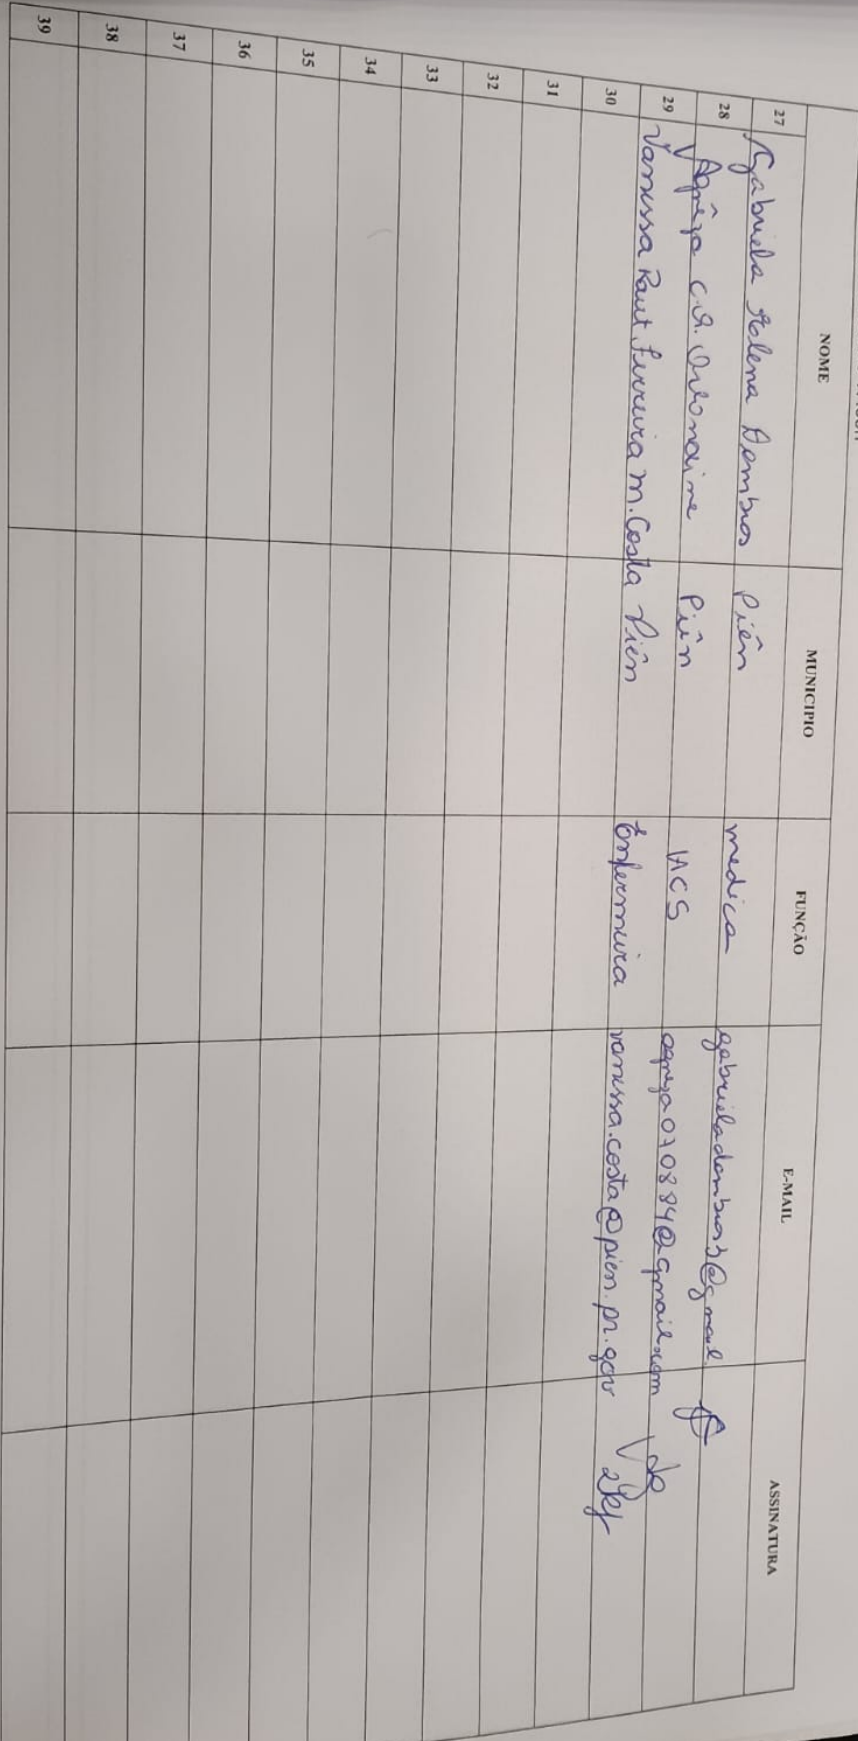 NOME MUNICIPIO FUNÇÃO E-MAIL ASSINATURA
27 Gabriela Helena Dembros Piên medica gabrieladembros3@gmail.
28 C.A. Piên ACS 070884@gmail.com
29 Vanessa Raut Ferreira M. Costa Piên Enfermeira vanessa.costa@pien.pr.gov
30
31
32
33
34
35
36
37
38
39